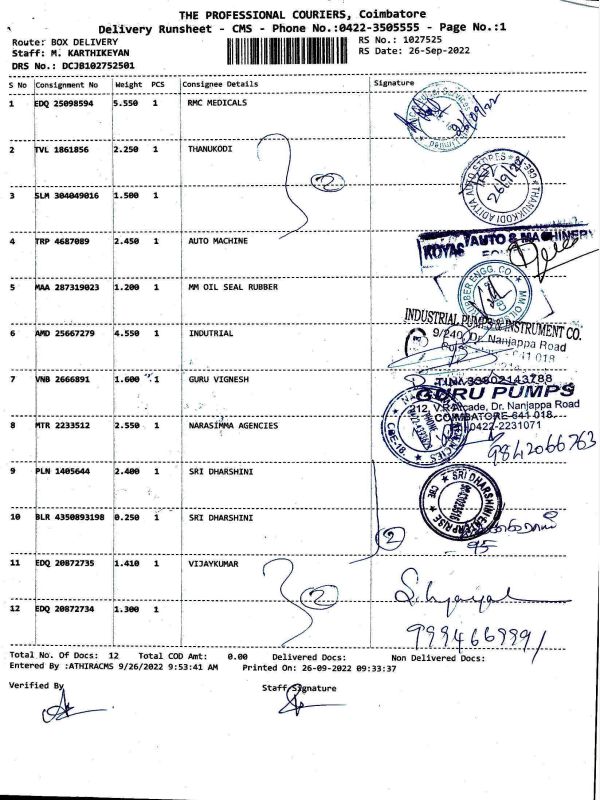 THE PROFESSIONAL COURIERS, Coimbatore
Delivery Runsheet - CMS - Phone No.:0422-3505555 - Page No.:1
Route: BOX DELIVERY
RS No.: 1027525
Staff: M. KARTHIKEYAN
RS Date: 26-Sep-2022
DRS No.: DCJB102752501
S No Consignment No Weight PCS Consignee Details Signature
1 EDQ 25098594 5.550 1 RMC MEDICALS
26/09/22
2 TVL 1861856 2.250 1 THANUKODI
2
THANUKODI ADITYA AUTO STORES
26/9/22
3 SLM 304049016 1.500 1
4 TRP 4687089 2.450 1 AUTO MACHINE
KOVAI AUTO & MACHINERY
5 MAA 287319023 1.200 1 MM OIL SEAL RUBBER
RUBBER ENGG. CO. ★ MM OIL
6 AMD 25667279 4.550 1 INDUTRIAL
INDUSTRIAL PUMPS & INSTRUMENT CO.
9/240, Dr. Nanjappa Road
641 018
7 VNB 2666891 1.600 1 GURU VIGNESH
TIN: 33802143788
GURU PUMPS
212, V.R.Arcade, Dr. Nanjappa Road
COIMBATORE-641 018.
0422-2231071
8 MTR 2233512 2.550 1 NARASIMMA AGENCIES
CBE-18
9842066763
9 PLN 1405644 2.400 1 SRI DHARSHINI
SRI DHARSHINI ENTERPRISE
CBE
10 BLR 4350893198 0.250 1 SRI DHARSHINI
2
95
11 EDQ 20872735 1.410 1 VIJAYKUMAR
2
12 EDQ 20872734 1.300 1
9994669991
Total No. Of Docs: 12 Total COD Amt: 0.00 Delivered Docs: Non Delivered Docs:
Entered By :ATHIRACMS 9/26/2022 9:53:41 AM Printed On: 26-09-2022 09:33:37
Verified By Staff Signature